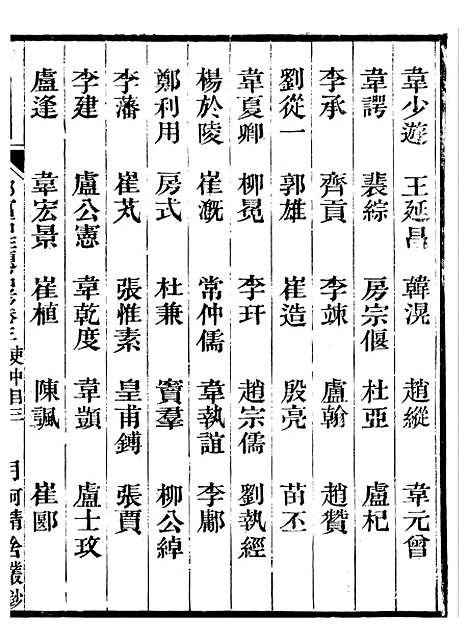 韋少遊 王延昌 韓滉 趙縱 韋元曾
韋諤 裴綜 房宗偃 杜亞 盧杞
李承 齊貢 李竦 盧翰 趙贊
劉從一 郭雄 崔造 殷亮 苗丕
韋夏卿 柳冕 李玕 趙宗儒 劉執經
楊於陵 崔溉 常仲儒 韋執誼 李鄘
鄭利用 房式 杜兼 竇羣 柳公綽
李藩 崔芃 張惟素 皇甫鎛 張賈
李建 盧公憲 韋乾度 韋顗 盧士玫
盧逢 韋宏景 崔植 陳諷 崔郾
吏中 三 月河精舍叢鈔